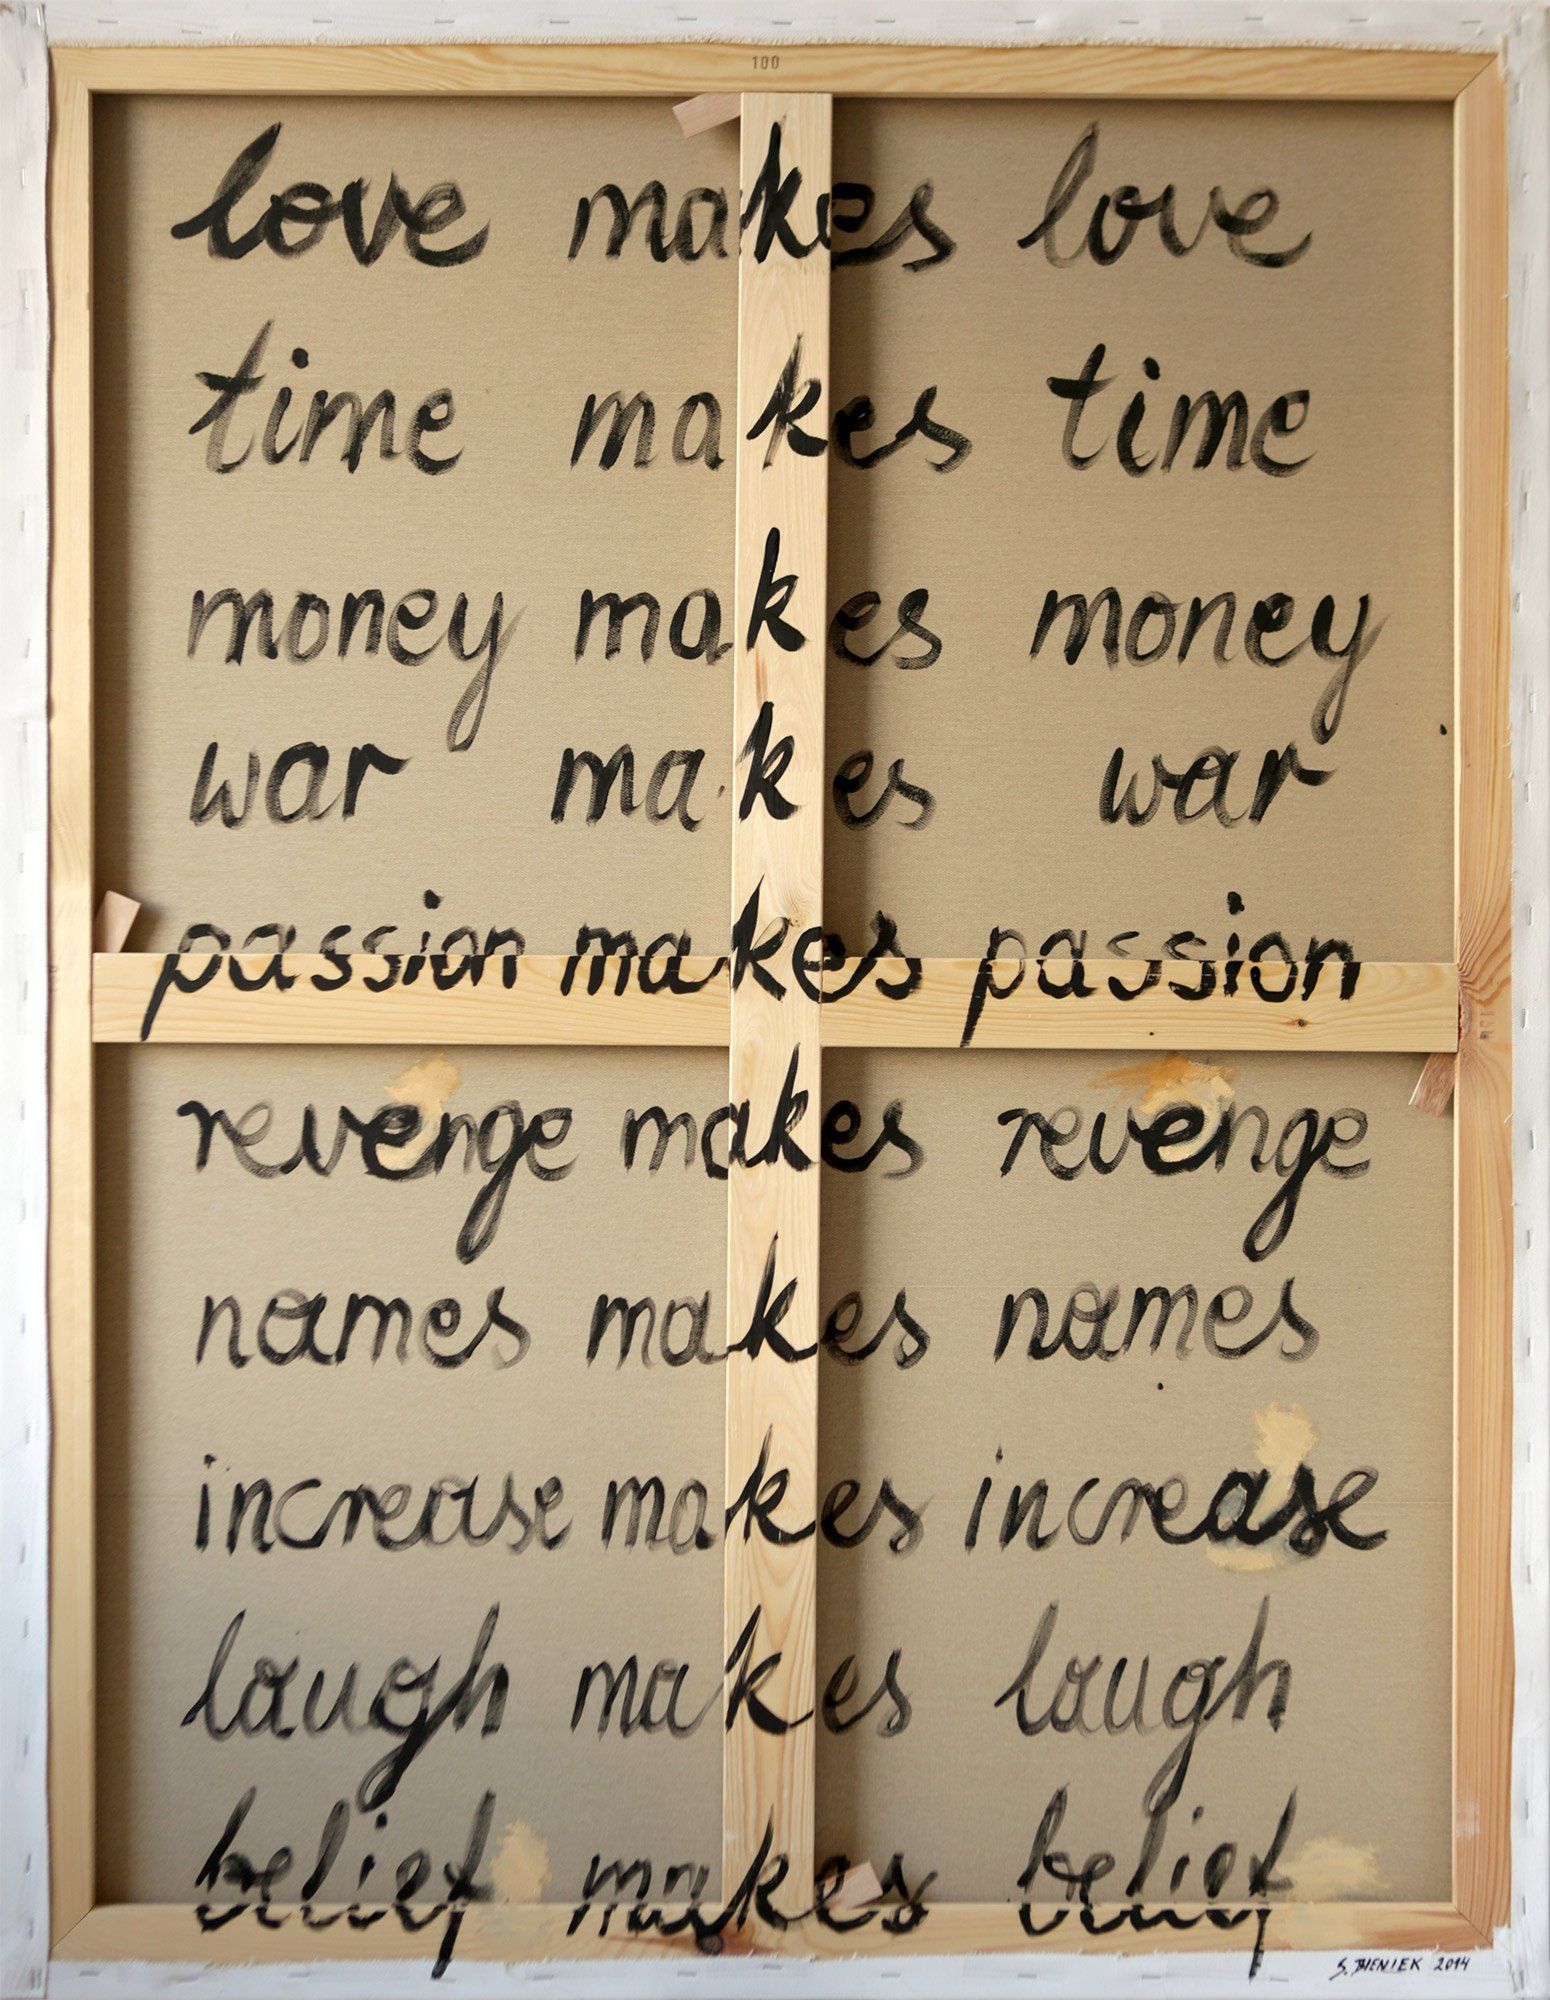 100
love makes love
time makes time
money makes money
war makes war
passion makes passion
revenge makes revenge
names makes names
increase makes increase
laugh makes laugh
belief makes belief
2014